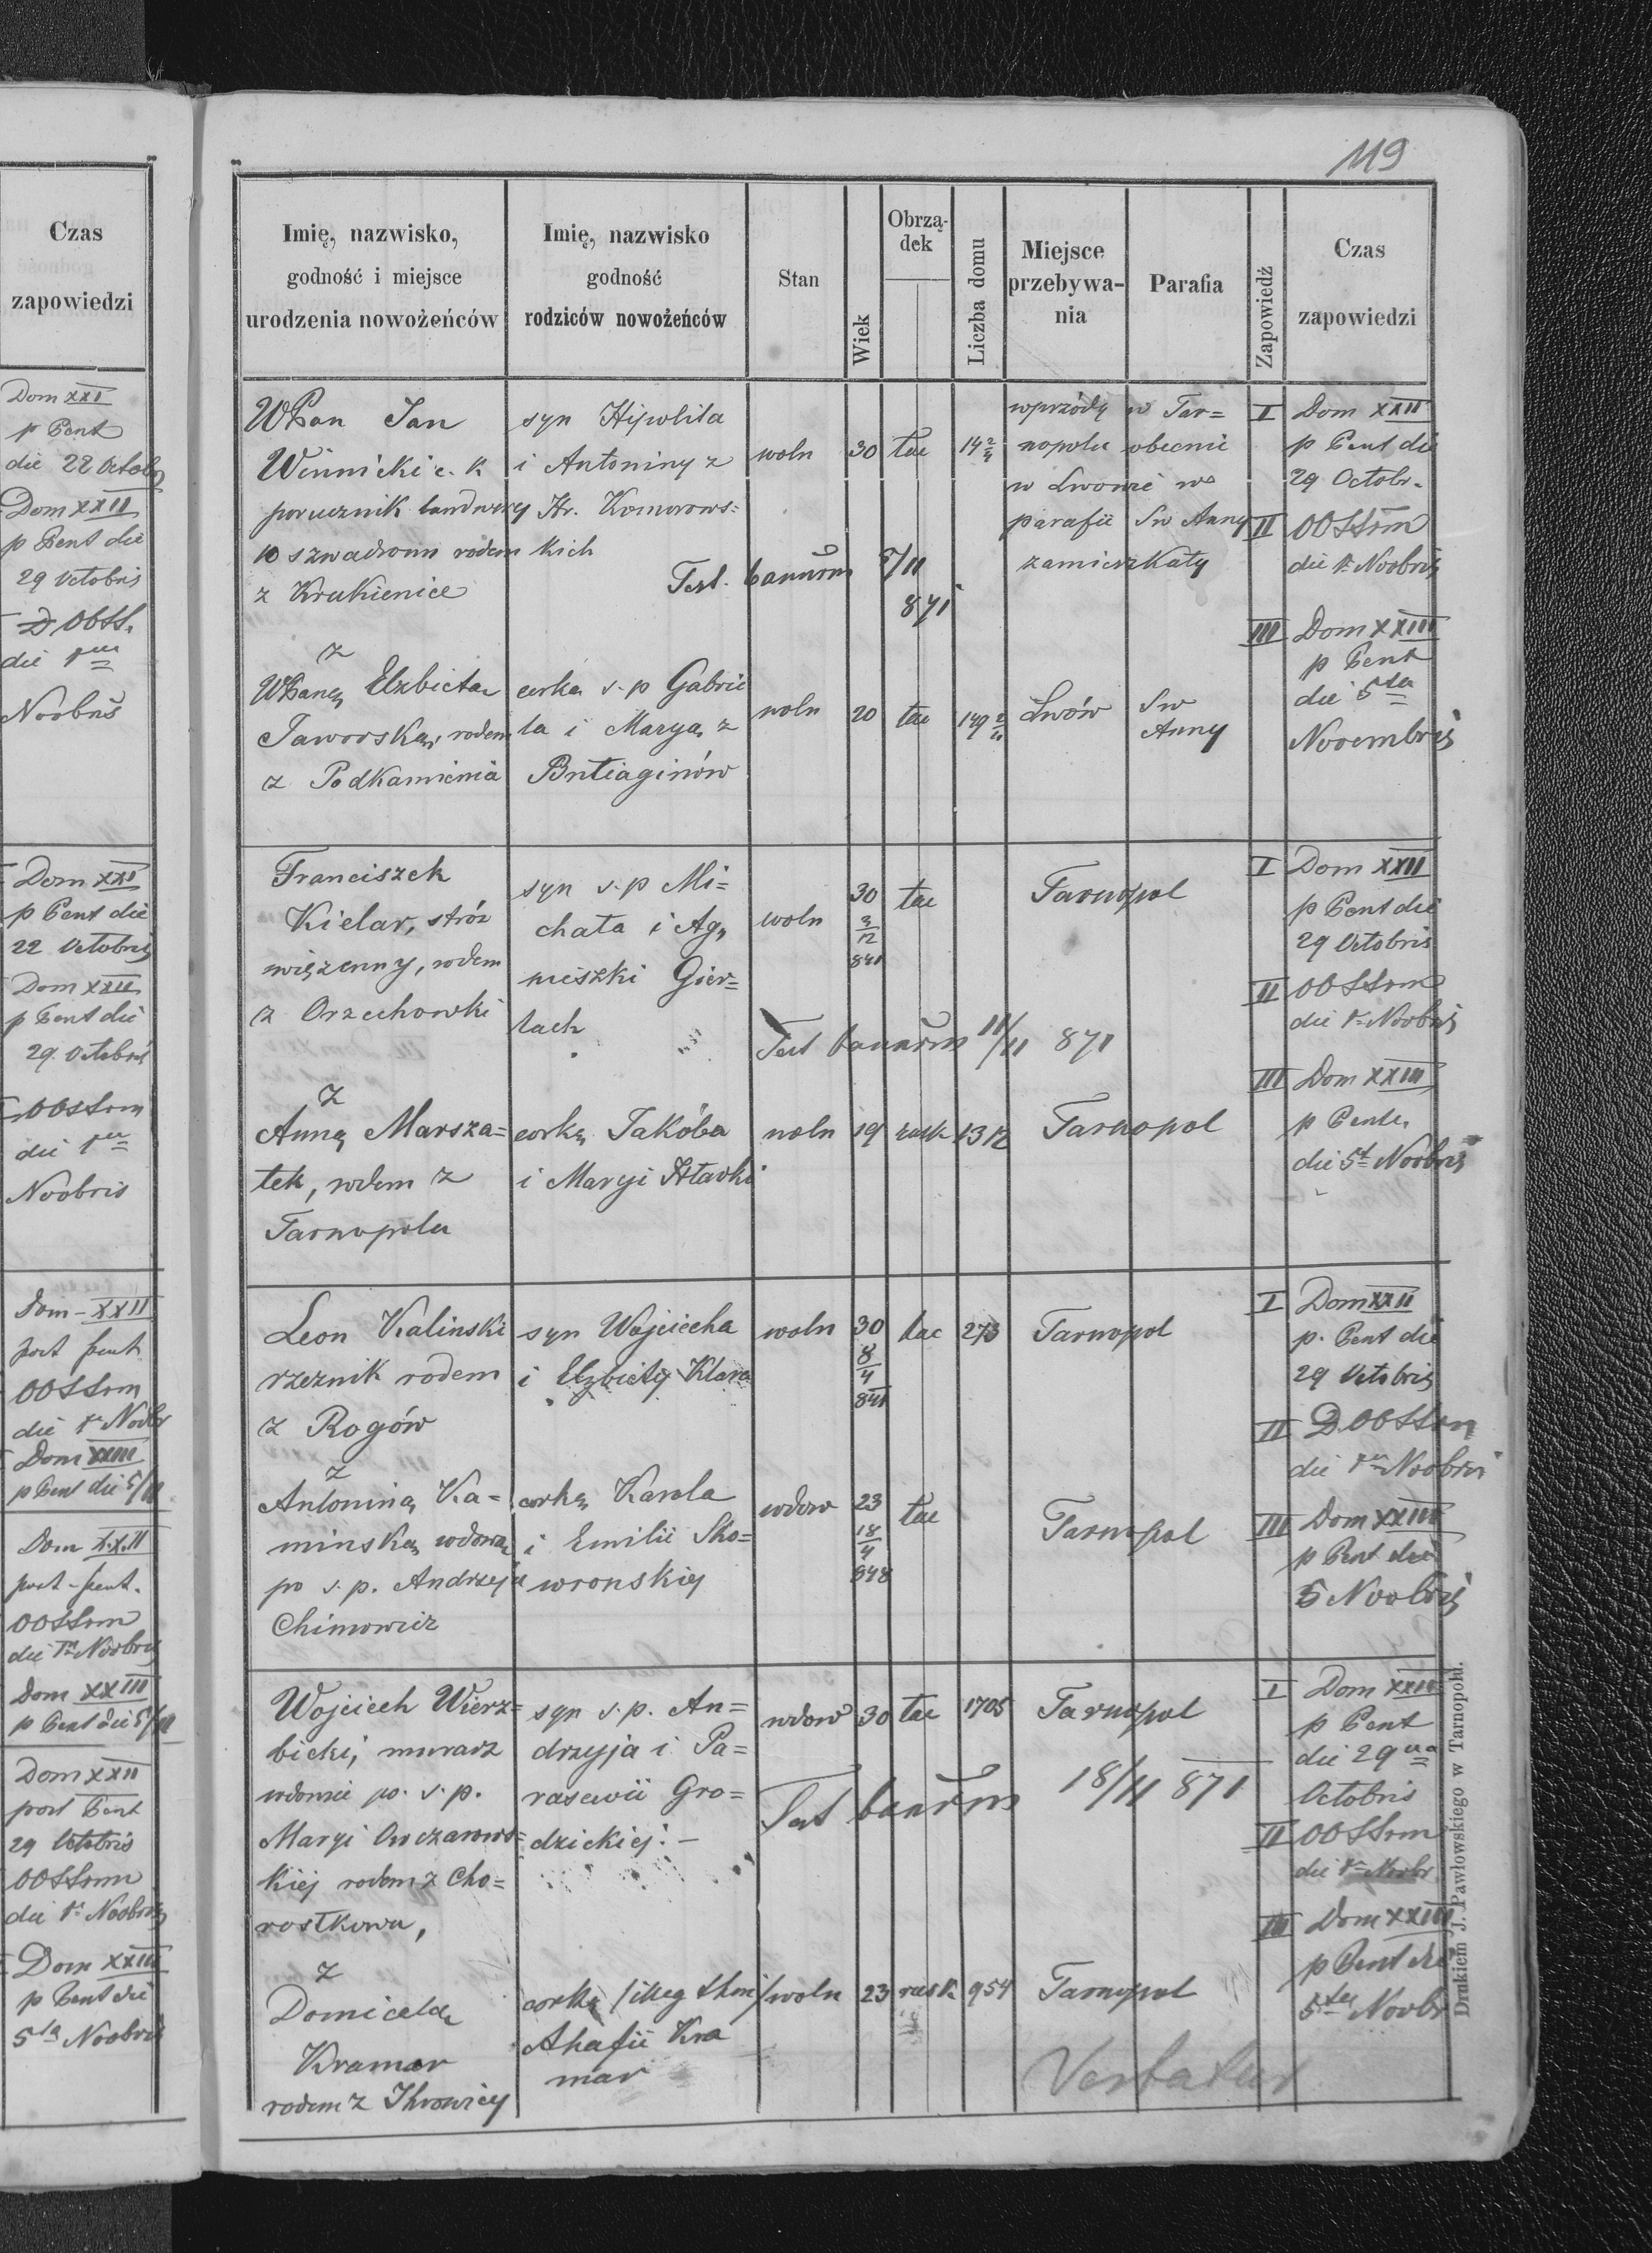 119
Czas
zapowiedzi
Dom XXI
p Pent
die 22 Octobr
Dom XXII
p Pent die
29 Octobris
die 1ma
Novbris
Dom XXI
p Pent die
22 Octobris
Dom XXII
p Pent die
29 Octobris
OOSSrm
die 1ma
Novbris
Dom - XXII
post pent
OOSSrm
die 1a Novbr
Dom XXIII
p Pent die 5/11
Dom XXII
post - pent.
OOSSrm
die 1a Novbris
Dom XXIII
p Pent die 5/11
Dom XXII
post Pent
29 Octobris
OOSSrm
die 1a Novbris
Dom XXIII
p Pent die
5ta Novbris
Imię, nazwisko,
godność i miejsce
urodzenia nowożeńców
Imię, nazwisko
godność
rodziców nowożeńców
Stan
Wiek
Obrzą-
dek
Liczba domu
Miejsce
przebywa-
nia
Parafia
Zapowiedź
Czas
zapowiedzi
WPan Jan
Winnicki c. k
porucznik landwery
10 szwadronu rodem
z Krukienice
syn Hipolita
i Antoniny z
Hr. Komorows=
kich
woln 30 łac 14 2/4
wprzódy w Tar=
nopolu obecnie
w Lwowie w
parafii Sw Anny
zamieszkały
Test. bannorum 5/11
871
I Dom XXII
p Pent die
29 Octobr.
II OOSSrm
die 1a Novbris
III Dom XXIII
p Pent
die 5ta
Novembris
z
WPaną Elzbietą
Jaworską, rodem
z Podkamienia
curka s. p Gabrie
la i Marya z
woln 20 łac 149 2/4 Lwów Sw
Anny
Franciszek
Kielar, stróz
więzenny, rodem
z Orzechowki
syn s. p Mi=
chała i Ag,
nieszki Gier=
lach
woln 30 łac Tarnopol
3/12
841
Test bannorum 11/11 871
I Dom XXII
p Pent die
29 Octobris
II OOSSrm
die 1a Novbris
III Dom XXIII
p Pente.
die 5ta Novbris
z
Anną Marsza=
łek, rodem z
Tarnopola
corką Jakóba
i Maryi Hławki
woln 19 rusk 1312 Tarnopol
Leon Kalinski
rzeznik rodem
z Rogów
syn Wojciecha
i Elzbiety Klara
woln 30 łac 273 Tarnopol
8/4
841
I Dom XXII
p. Pent die
29 Octobris
II OOSSrm
die 1a Novbris
III Dom XXIII
p Pent die
5 Novbris
z
Antoniną Ka=
minską wdową
po s. p. Andrzeju
Chimowicz
corką Karola
i Emilii Sko=
wronskiej
wdow 23 łac Tarnopol
18/4
848
Wojciech Wierz=
bicki, murarz
wdowiec po. s. p.
Maryi Owczarows=
kiej rodem z Cho=
rostkowa,
syn s. p. An=
drzyja i Pa=
rasewii Gro=
dzickiej. -
wdow 30 łac 1705 Tarnopol
Test bannorum 18/11 871
I Dom XXII
p Pent
die 29na
Octobris
II OOSSrm
die 1a Novbr
III Dom XXIII
p Pent die
5ta Novbr
z
Domicela
Kramar
rodem z Ihrowicy
corką /illeg thori/
Ahafii Kra
mar
woln 23 rusk 954 Tarnopol
Drukiem J. Pawłowskiego w Tarnopolu.